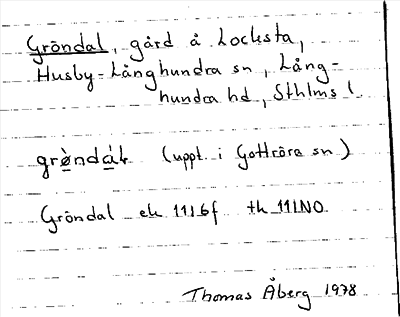 Gröndal, gård å Locksta,
Husby-Långhundra sn, Lång-
hundra hd, Sthlms l.
grö̀ndál (uppt. i Gottröra sn)
Gröndal ek 11I6f th 11INO.
Thomas Åberg 1978